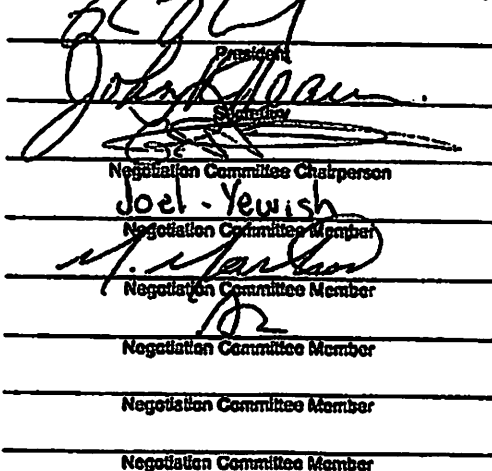 President
John
Secretary
Negotiation Committee Chairperson
Joel - Yewish
Negotiation Committee Member
M.
Negotiation Committee Member
Negotiation Committee Member
Negotiation Committee Member
Negotiation Committee Member